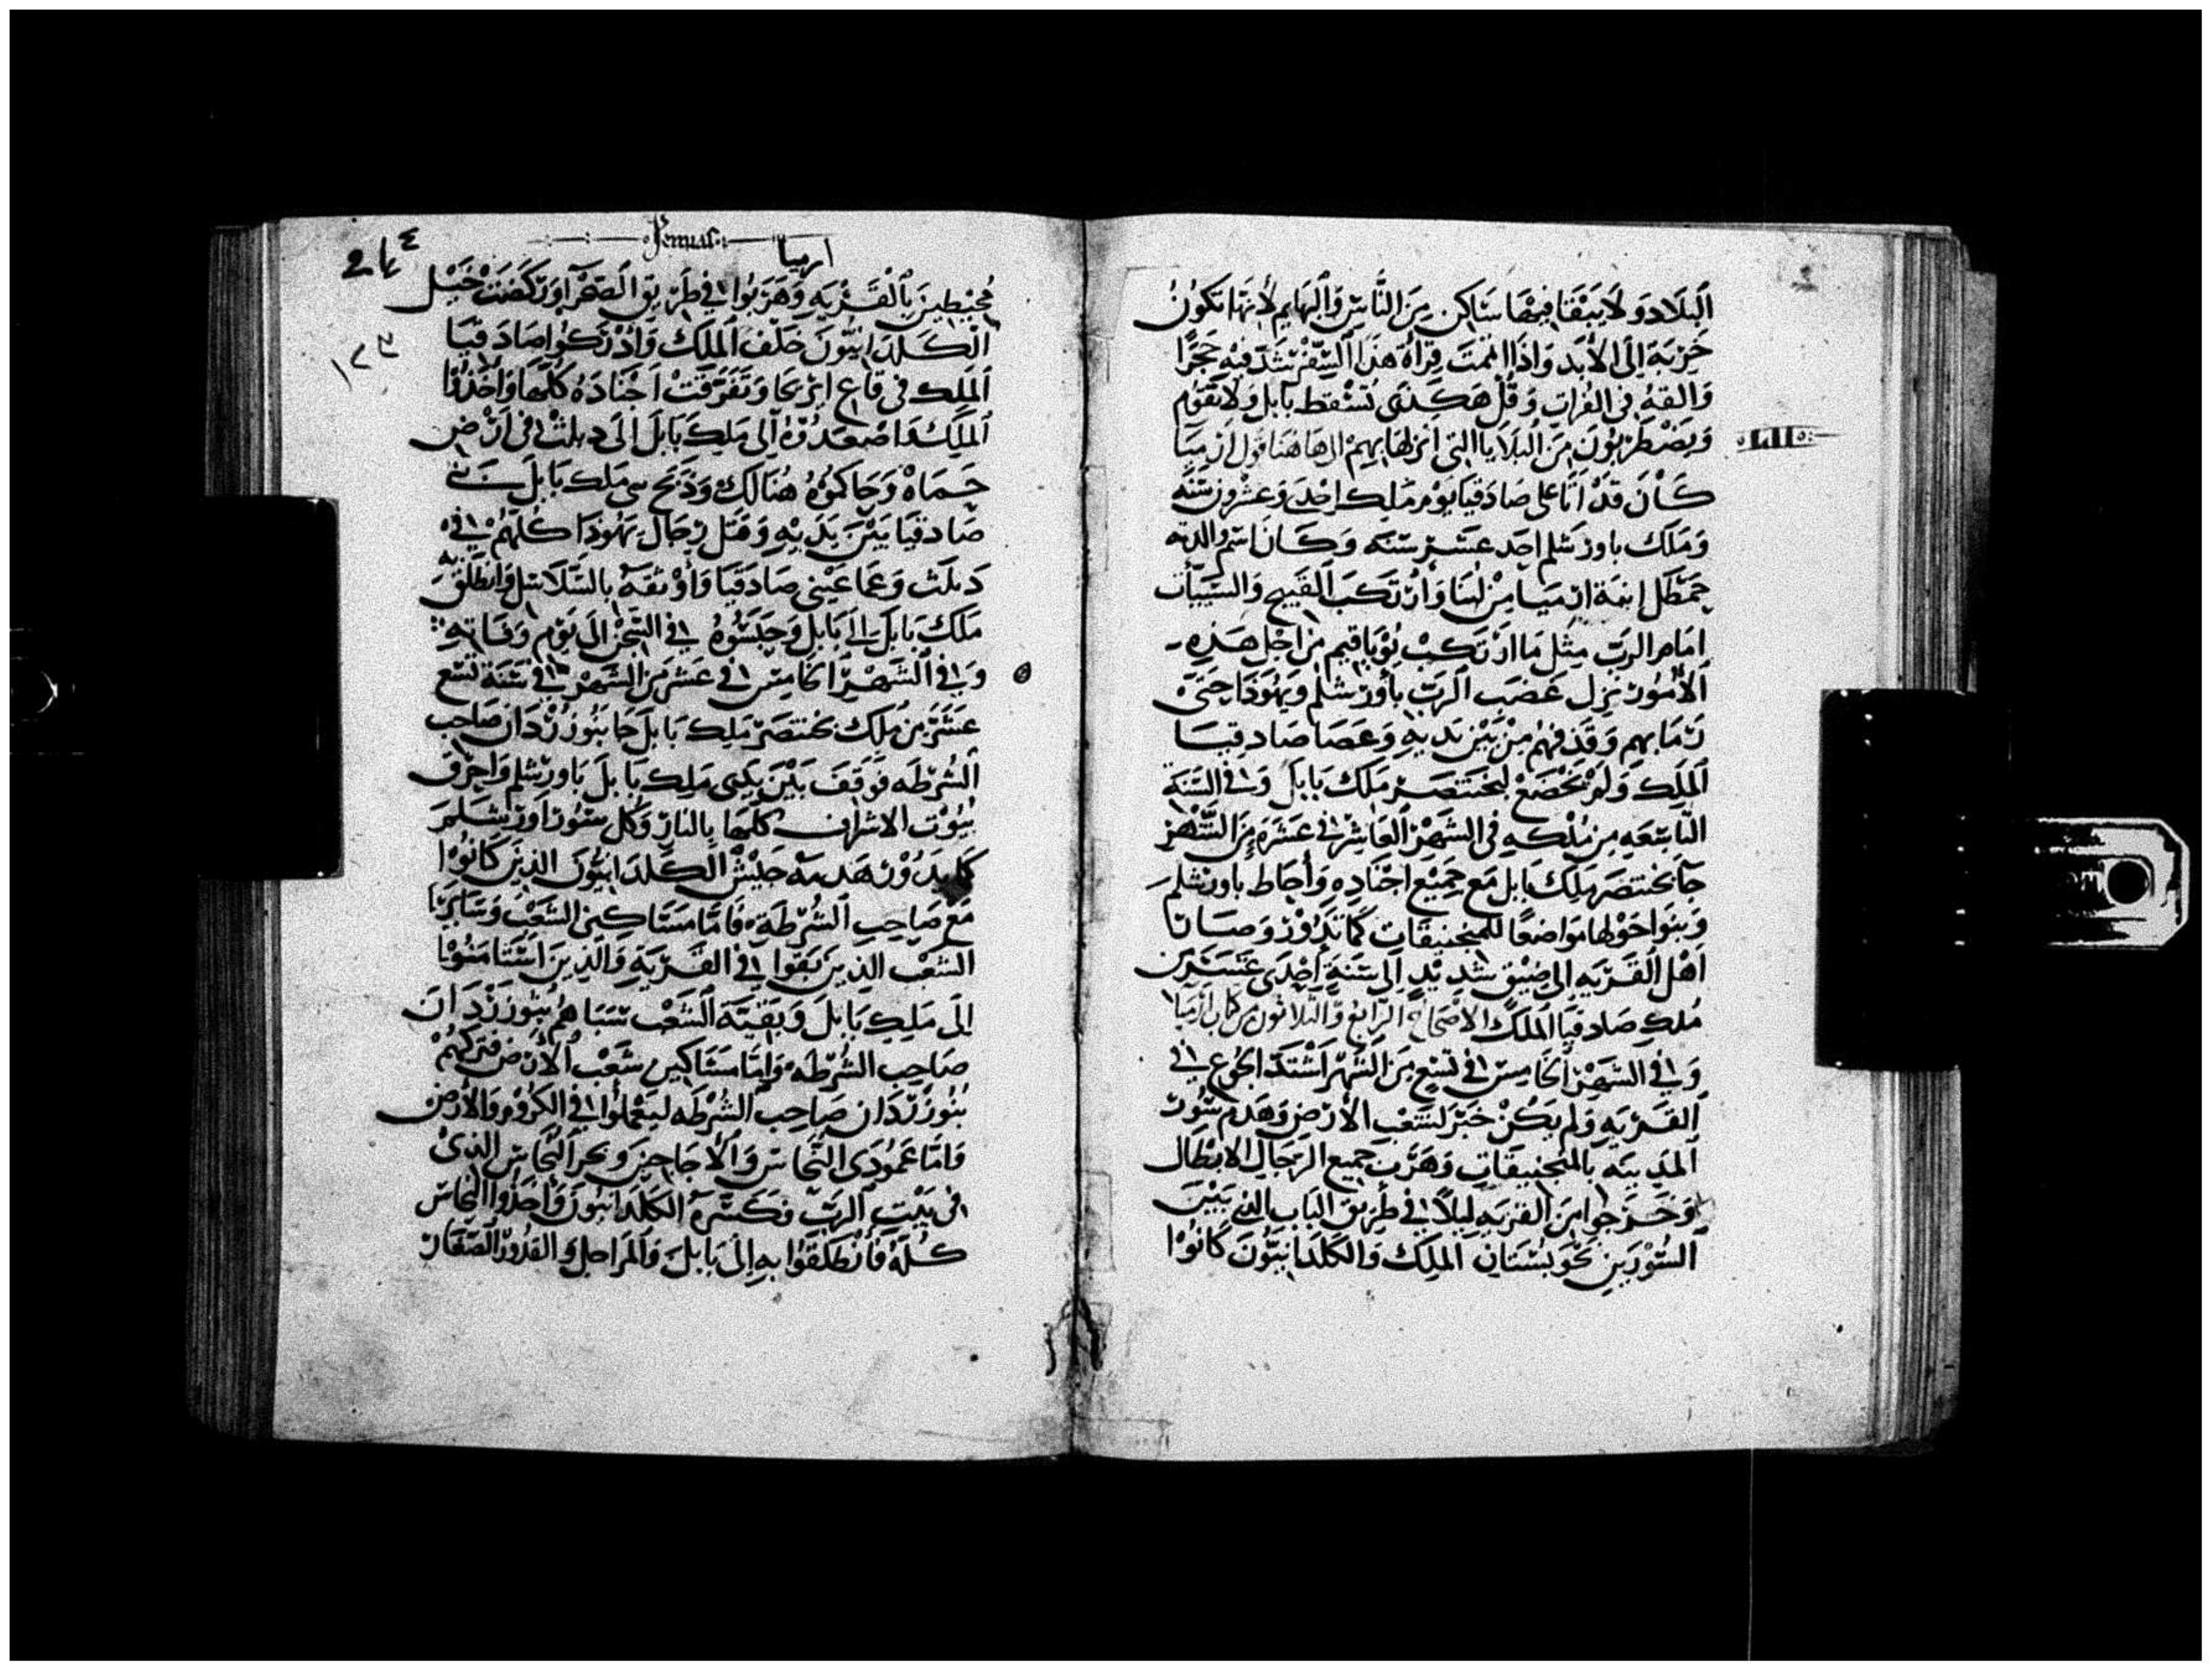 البلاد ولا يبقا فيها ساكن من الناس والبهايم لأنها تكون
خربة الى الأبد واذا اتممت قرأة هذا السفر شد فيه حجرًا
والقه في الفرات وقل هكذى تسقط بابل ولا تقوم
ويضطربون من البلايا التى انزلها بهم الى هاهنا قول ارميا
كان قد اتا على صادقيا يوم ملك احد وعشرون سنه
وملك باورشلم احد عشر سنه وكان اسم والدته
حمطل ابنة ارميا من لبنا وارتكب القبيح والسيات
امام الرب مثل ما ارتكب يوياقيم من اجل هذه
الأمور نزل غضب الرب بأورشلم ويهودا حتى
رما بهم وقذفهم من بين يديه وعصا صادقيا
الملك ولم يخضع لبختنصر ملك بابل وفي السنة
التاسعه من ملكه في الشهر العاشر في عشرة من الشهر
جا بختنصر ملك بابل مع جميع اجناده وأحاط باورشلم
وبنوا حولها مواضعا للمنجنيقات كما تدور وصارتا
اهل القريه الى ضيق شديد الى سنة احدى عشر من
ملك صادقيا الملك الاصحاح الرابع والثلاثون من كتاب ارميا
وفي الشهر الخامس في تسع من الشهر اشتد الجوع في
القريه ولم يكن خبز لشعب الأرض وهدم سور
المدينه بالمنجنيقات وهرب جميع الرجال الابطال
وخرجوا من القريه ليلاً في طريق الباب الذي بين
السورين نحو بستان الملك والكلدانيون كانوا
Jeremias
ارميا
244
١٢٣
محيطين بالقريه وهربوا في طريق الصحرآ وركضت خيل
الكلدانيون خلف الملك وادركوا صادقيا
الملك في قاع اريحا وتفرقت اجناده كلها وأخذوا
الملك واصعدوه الى ملك بابل الى دبلث في ارض
حماه وحاكموه هنالك وذبح ملك بابل بني
صادقيا بين يديه وقتل رجال يهودا كلهم في
دبلث وعما عيني صادقيا وأوثقه بالسلاسل وانطلق به
ملك بابل الى بابل وحبسوه في السجن الى يوم وفاته
وفي الشهر الخامس في عشر من الشهر في سنة تسع
عشر من ملك بختنصر ملك بابل جا بنوزردان صاحب
الشرطه فوقف بين يدى ملك بابل باورشلم واحرق
بيوت الاشراف كلها بالنار وكل سور اورشلم
كما يدور هدمه جيش الكلدانيون الذين كانوا
مع صاحب الشرطة فاما مساكين الشعب وساير
الشعب الذين بقوا في القريه والذين استامنوا
الى ملك بابل وبقية الشعب سباهم بنوزردان
صاحب الشرطه واما مساكين شعب الأرض فتركهم
بنوزردان صاحب الشرطه ليعملوا في الكروم والأرض
فاما عمودى النحاس والاجاجين وبحر النحاس الذى
في بيت الرب فكسره الكلدانيون وأخذوا النحاس
كله فأنطلقوا به الى بابل والمراجل والقدور الصغار